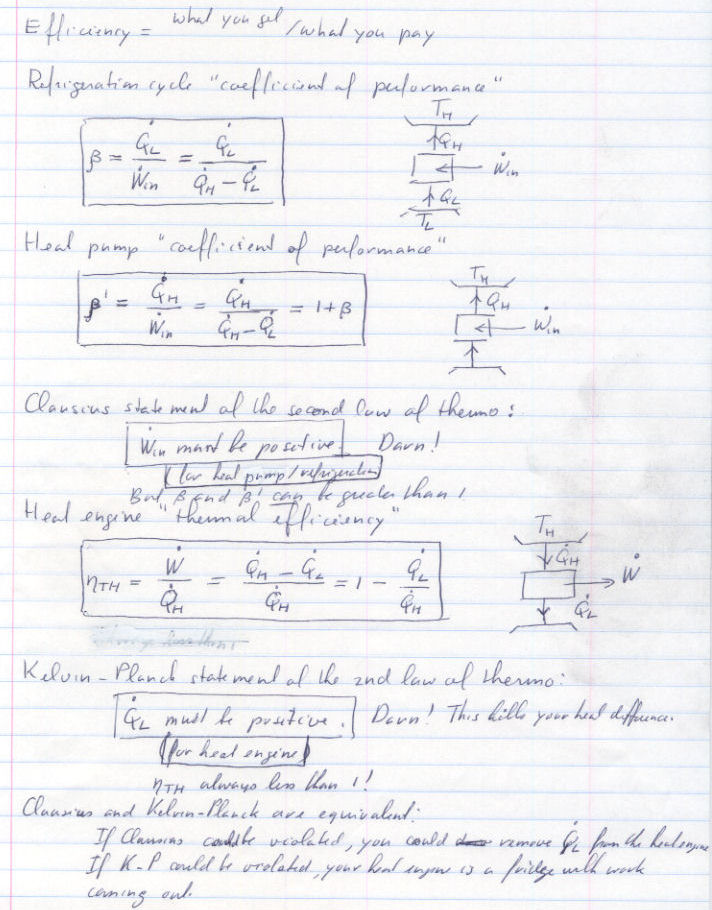 Efficiency = what you get / what you pay
Refrigeration cycle "coefficient of performance"
β = Q̇L / Ẇin = Q̇L / (Q̇H − Q̇L)
TH
Q̇H
Ẇin
Q̇L
TL
Heat pump "coefficient of performance"
β' = Q̇H / Ẇin = Q̇H / (Q̇H − Q̇L) = 1+β
TH
Q̇H
Ẇin
Clausius statement of the second law of thermo:
Ẇin must be positive. Darn!
(for heat pump/refrigeration)
But β and β' can be greater than 1
Heat engine "thermal efficiency"
ηTH = Ẇ / Q̇H = (Q̇H − Q̇L) / Q̇H = 1 − Q̇L / Q̇H
TH
Q̇H
Ẇ
Q̇L
Kelvin-Planck statement of the 2nd law of thermo:
Q̇L must be positive. Darn! This kills your heat difference.
(for heat engine)
ηTH always less than 1!
Clausius and Kelvin-Planck are equivalent:
If Clausius could be violated, you could remove Q̇L from the heat engine
If K-P could be violated, your heat engine is a fridge with work
coming out.